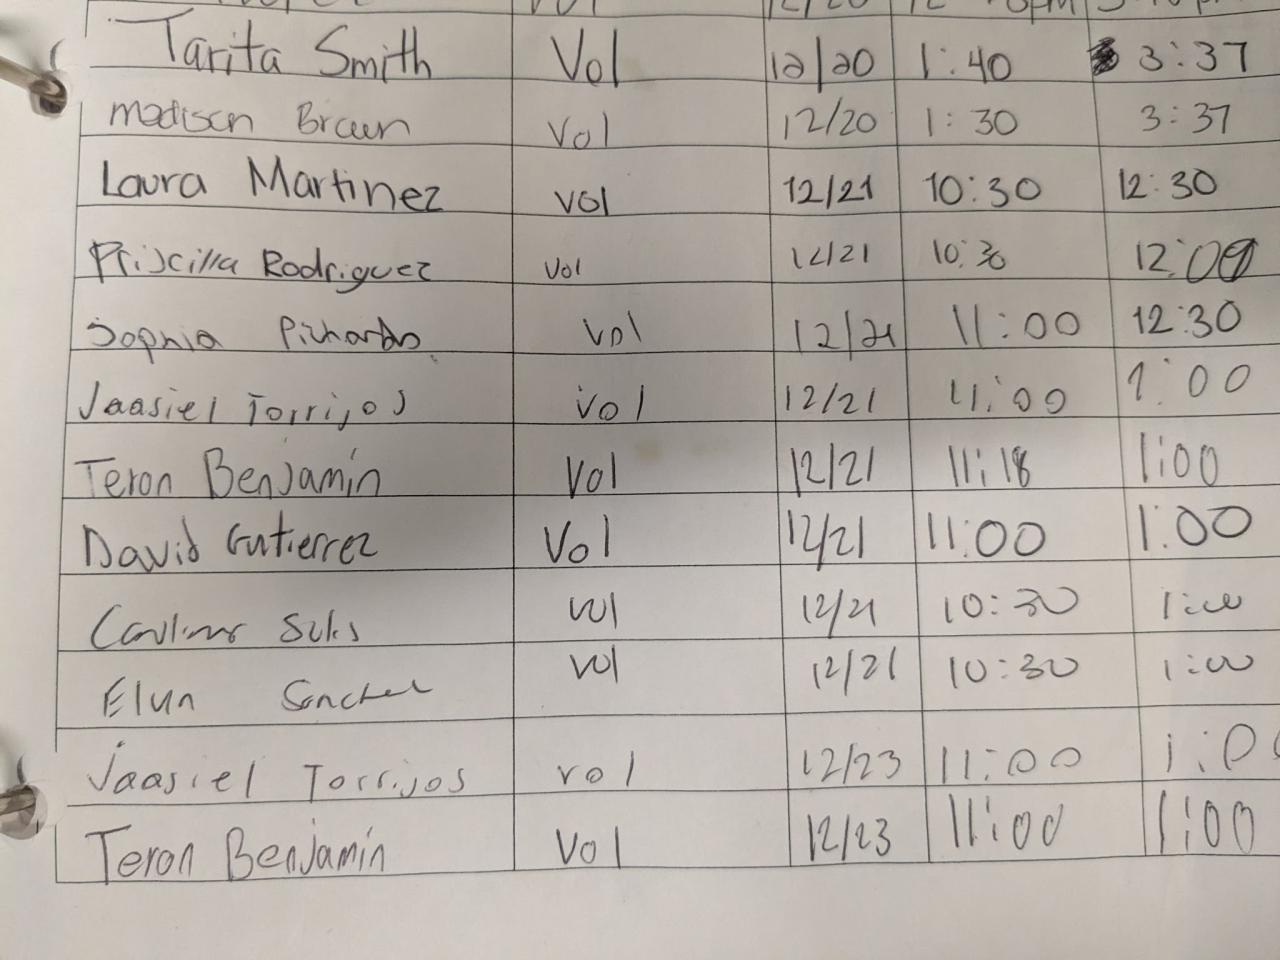 Tarita Smith Vol 12/20 1:40 3:37
madison Brown Vol 12/20 1:30 3:37
Laura Martinez vol 12/21 10:30 12:30
Priscilla Rodriguez Vol 12/21 10:30 12:00
Sophia Pichardo Vol 12/21 11:00 12:30
Jaasiel Torrijos vol 12/21 11:00 1:00
Teron Benjamin Vol 12/21 11:18 1:00
David Gutierrez Vol 12/21 11:00 1:00
vol 12/21 10:30 1:00
vol 12/21 10:30 1:00
Jaasiel Torrijos vol 12/23 11:00 1:00
Teron Benjamin Vol 12/23 11:00 1:00